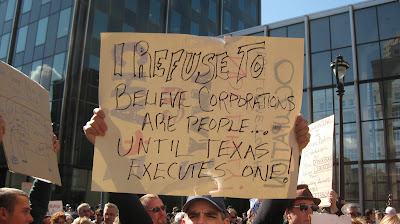 I REFUSE TO
BELIEVE CORPORATIONS
ARE PEOPLE...
UNTIL TEXAS
EXECUTES ONE!